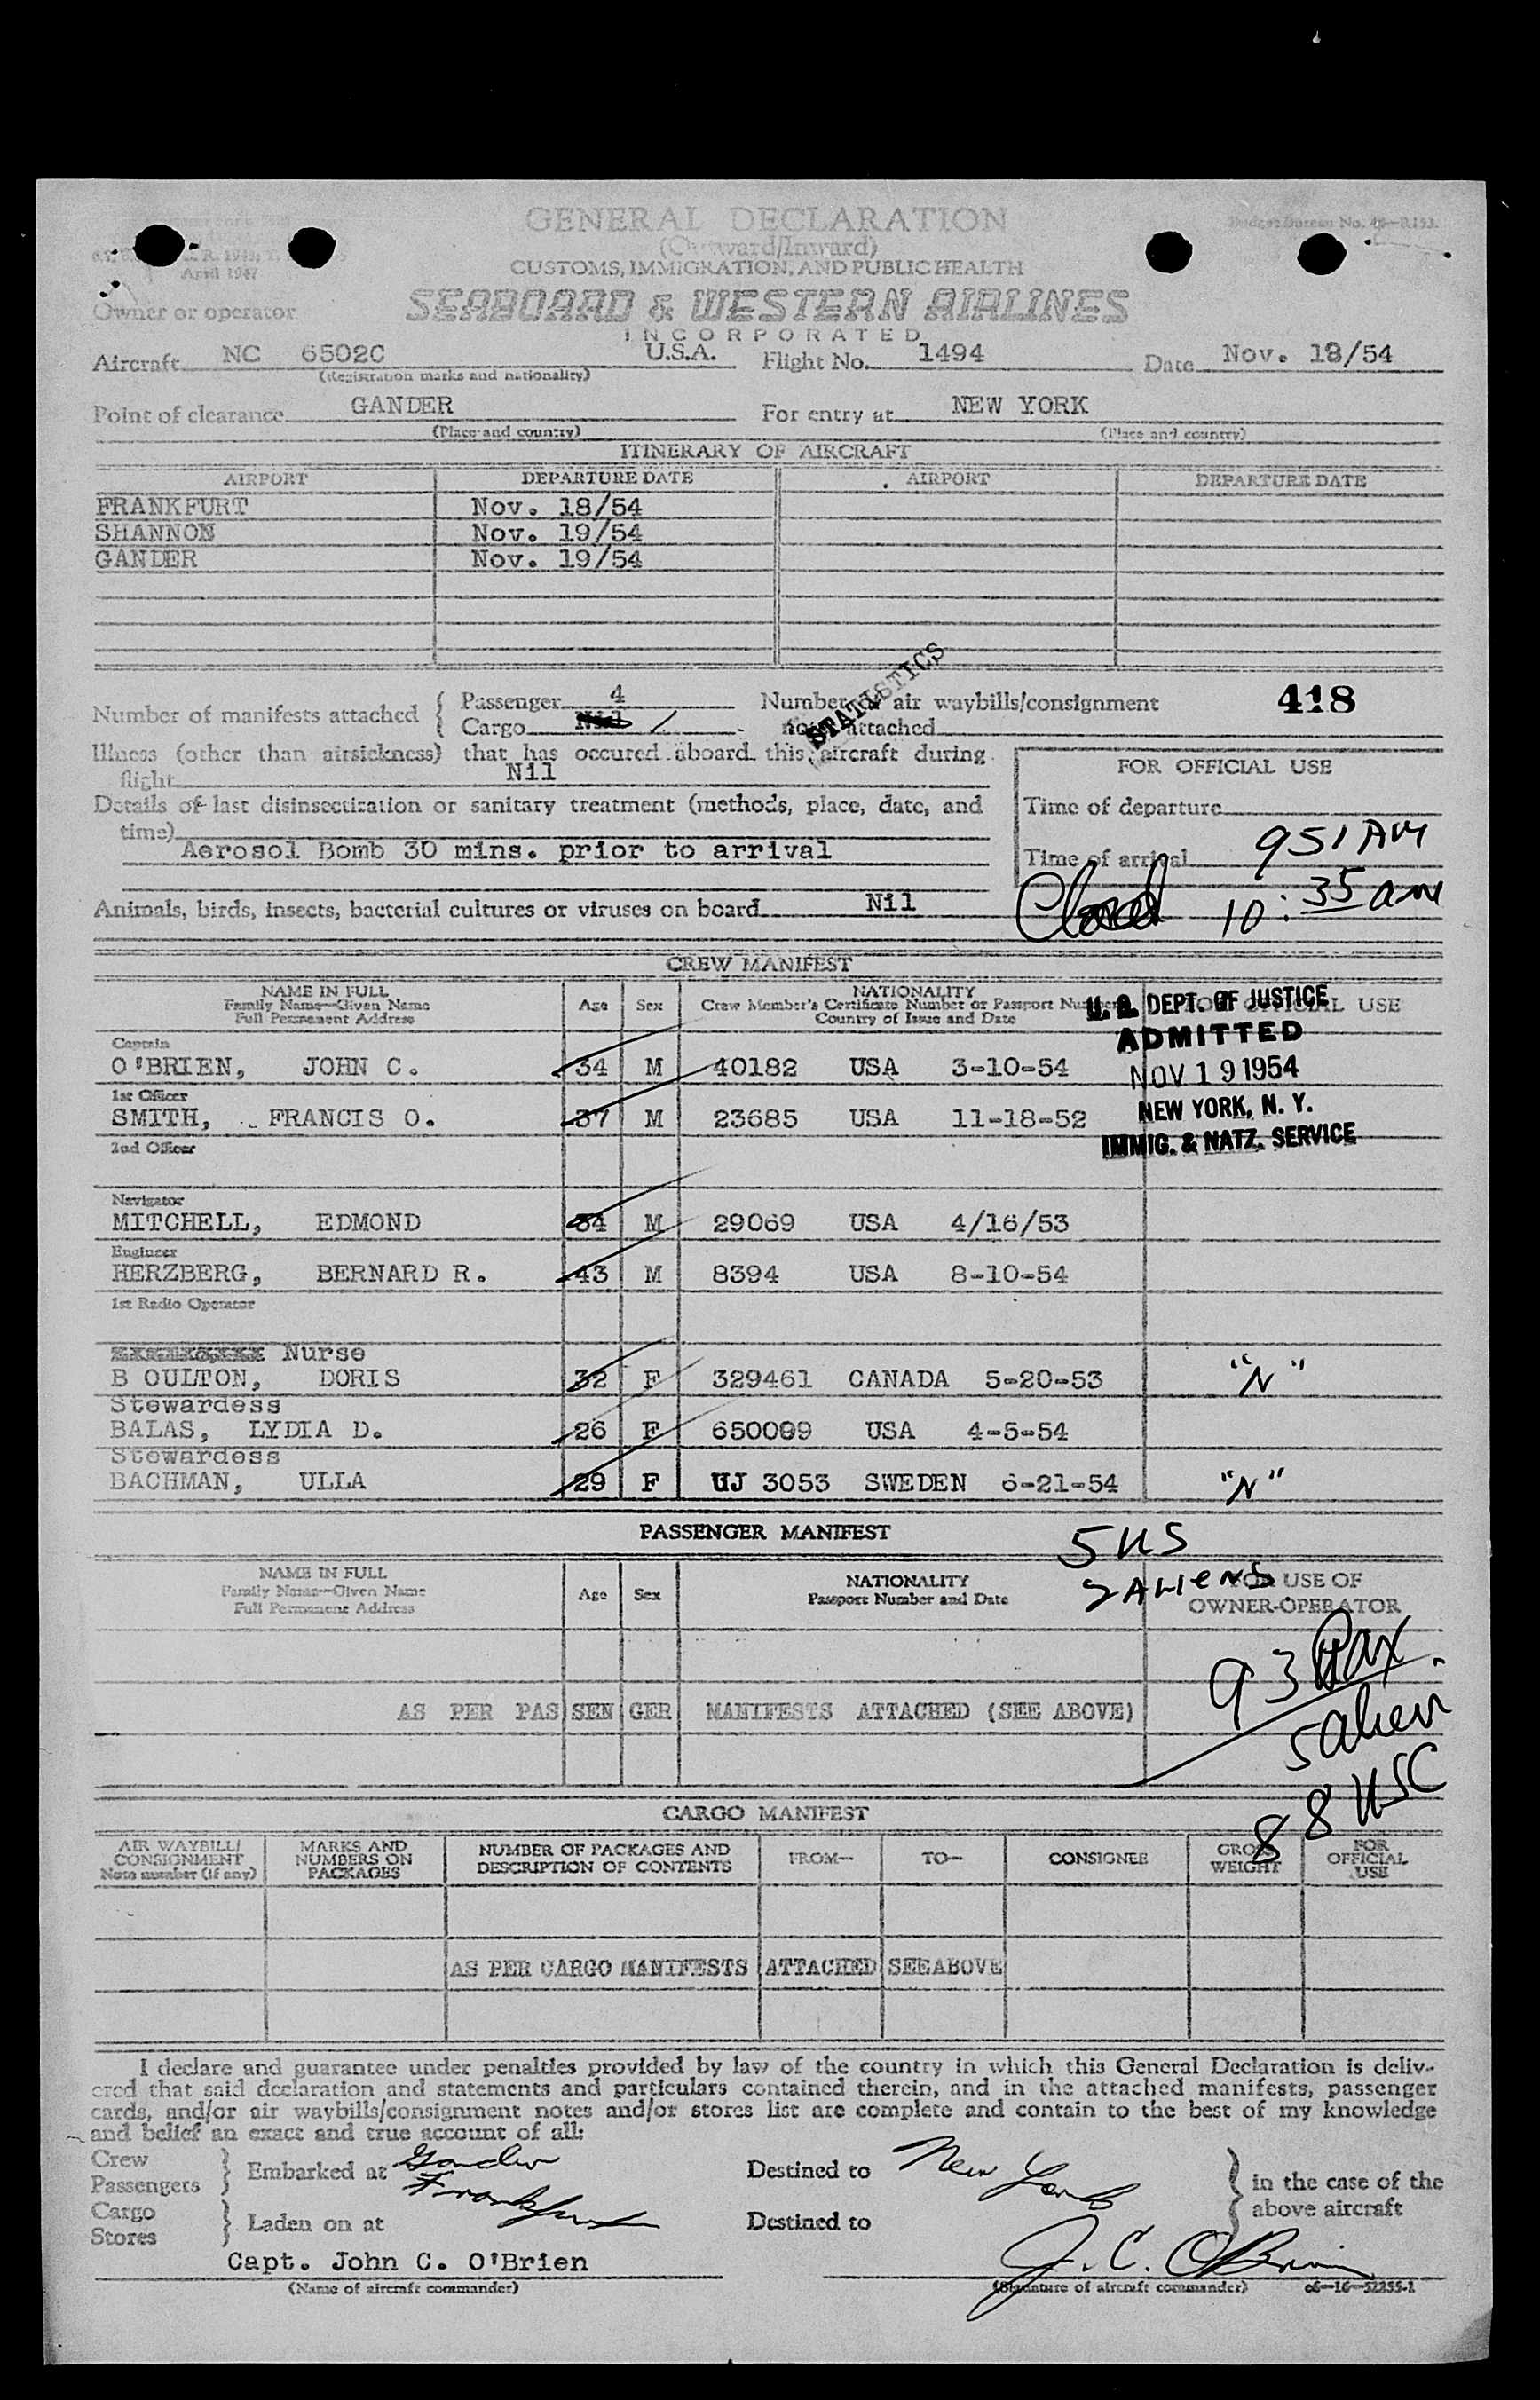 GENERAL DECLARATION
(Outward/Inward)
Budget Bureau No.
April 1947
CUSTOMS, IMMIGRATION, AND PUBLIC HEALTH
Owner or operator
SEABOARD & WESTERN AIRLINES
INCORPORATED
Aircraft NC 6502C U.S.A. Flight No. 1494 Date Nov. 18/54
(Registration marks and nationality)
Point of clearance GANDER For entry at NEW YORK
(Place and country) (Place and country)
ITINERARY OF AIRCRAFT
AIRPORT DEPARTURE DATE AIRPORT DEPARTURE DATE
FRANKFURT Nov. 18/54
SHANNON Nov. 19/54
GANDER Nov. 19/54
STATISTICS
Number of manifests attached { Passenger 4 Number of air waybills/consignment 418
Cargo Nil 1 attached
Illness (other than airsickness) that has occured aboard this aircraft during
flight Nil
FOR OFFICIAL USE
Details of last disinsectization or sanitary treatment (methods, place, date, and
time)
Time of departure
Aerosol Bomb 30 mins. prior to arrival
Time of arrival 951 AM
Closed 10:35 am
Animals, birds, insects, bacterial cultures or viruses on board Nil
CREW MANIFEST
NAME IN FULL
Family Name—Given Name
Full Permanent Address
Age Sex
NATIONALITY
Crew Member's Certificate Number or Passport Number
Country of Issue and Date
FOR OFFICIAL USE
U. S. DEPT. OF JUSTICE
ADMITTED
NOV 19 1954
NEW YORK, N. Y.
IMMIG. & NATZ. SERVICE
Captain
O'BRIEN, JOHN C. 34 M 40182 USA 3-10-54
1st Officer
SMITH, FRANCIS O. 37 M 23685 USA 11-18-52
2nd Officer
Navigator
MITCHELL, EDMOND 34 M 29069 USA 4/16/53
Engineer
HERZBERG, BERNARD R. 43 M 8394 USA 8-10-54
1st Radio Operator
Nurse
B OULTON, DORIS 32 F 329461 CANADA 5-20-53 "N"
Stewardess
BALAS, LYDIA D. 26 F 650099 USA 4-5-54
Stewardess
BACHMAN, ULLA 29 F UJ 3053 SWEDEN 6-21-54 "N"
PASSENGER MANIFEST
5 US
2 ALIENS
NAME IN FULL
Family Name—Given Name
Full Permanent Address
Age Sex
NATIONALITY
Passport Number and Date
FOR USE OF
OWNER-OPERATOR
93 Pax.
AS PER PASSENGER MANIFESTS ATTACHED (SEE ABOVE)
5 alien
88 USC
CARGO MANIFEST
AIR WAYBILL/
CONSIGNMENT
Note number (if any)
MARKS AND
NUMBERS ON
PACKAGES
NUMBER OF PACKAGES AND
DESCRIPTION OF CONTENTS
FROM— TO— CONSIGNEE
GROSS
WEIGHT
FOR
OFFICIAL
USE
8
AS PER CARGO MANIFESTS ATTACHED SEE ABOVE
I declare and guarantee under penalties provided by law of the country in which this General Declaration is deliv-
ered that said declaration and statements and particulars contained therein, and in the attached manifests, passenger
cards, and/or air waybills/consignment notes and/or stores list are complete and contain to the best of my knowledge
and belief an exact and true account of all:
Crew
Passengers } Embarked at Gander Frankfurt Destined to New York } in the case of the
above aircraft
Cargo
Stores } Laden on at Destined to
Capt. John C. O'Brien J. C. O'Brien
(Name of aircraft commander) (Signature of aircraft commander) c6—16—52255-1